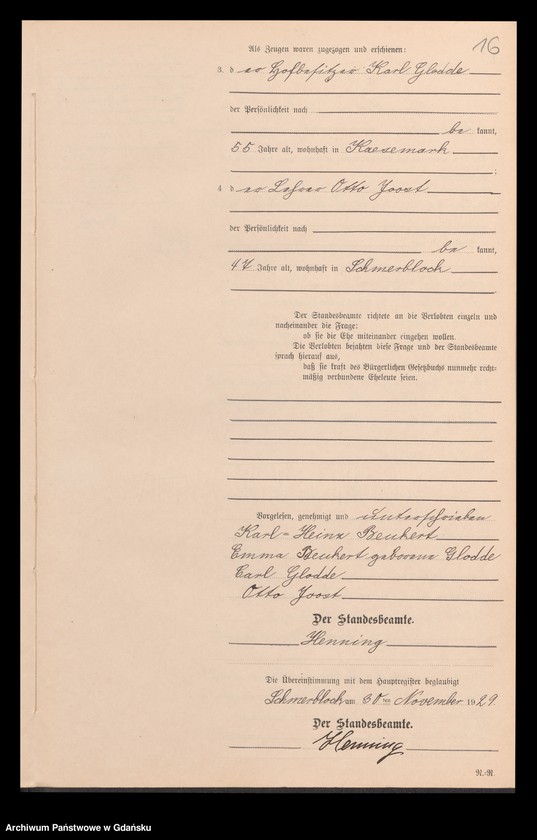 16
Als Zeugen waren zugezogen und erschienen:
3. d er Hofbesitzer Karl Glodde
der Persönlichkeit nach
be kannt,
55 Jahre alt, wohnhaft in Kaesemark
;
4 d er Lehrer Otto Joost
der Persönlichkeit nach
be kannt,
47 Jahre alt, wohnhaft in Schmerblock
.
Der Standesbeamte richtete an die Verlobten einzeln und
nacheinander die Frage:
ob sie die Ehe miteinander eingehen wollen.
Die Verlobten bejahten diese Frage und der Standesbeamte
sprach hierauf aus,
daß sie kraft des Bürgerlichen Gesetzbuchs nunmehr recht-
mäßig verbundene Eheleute seien.
Vorgelesen, genehmigt und unterschrieben
Karl-Heinz Beukert
Emma Beukert geborene Glodde
Carl Glodde
Otto Joost
Der Standesbeamte.
Henning
Die Übereinstimmung mit dem Hauptregister beglaubigt
Schmerblock am 30ten November 1929.
Der Standesbeamte.
Henning
R.-R.
Archiwum Państwowe w Gdańsku